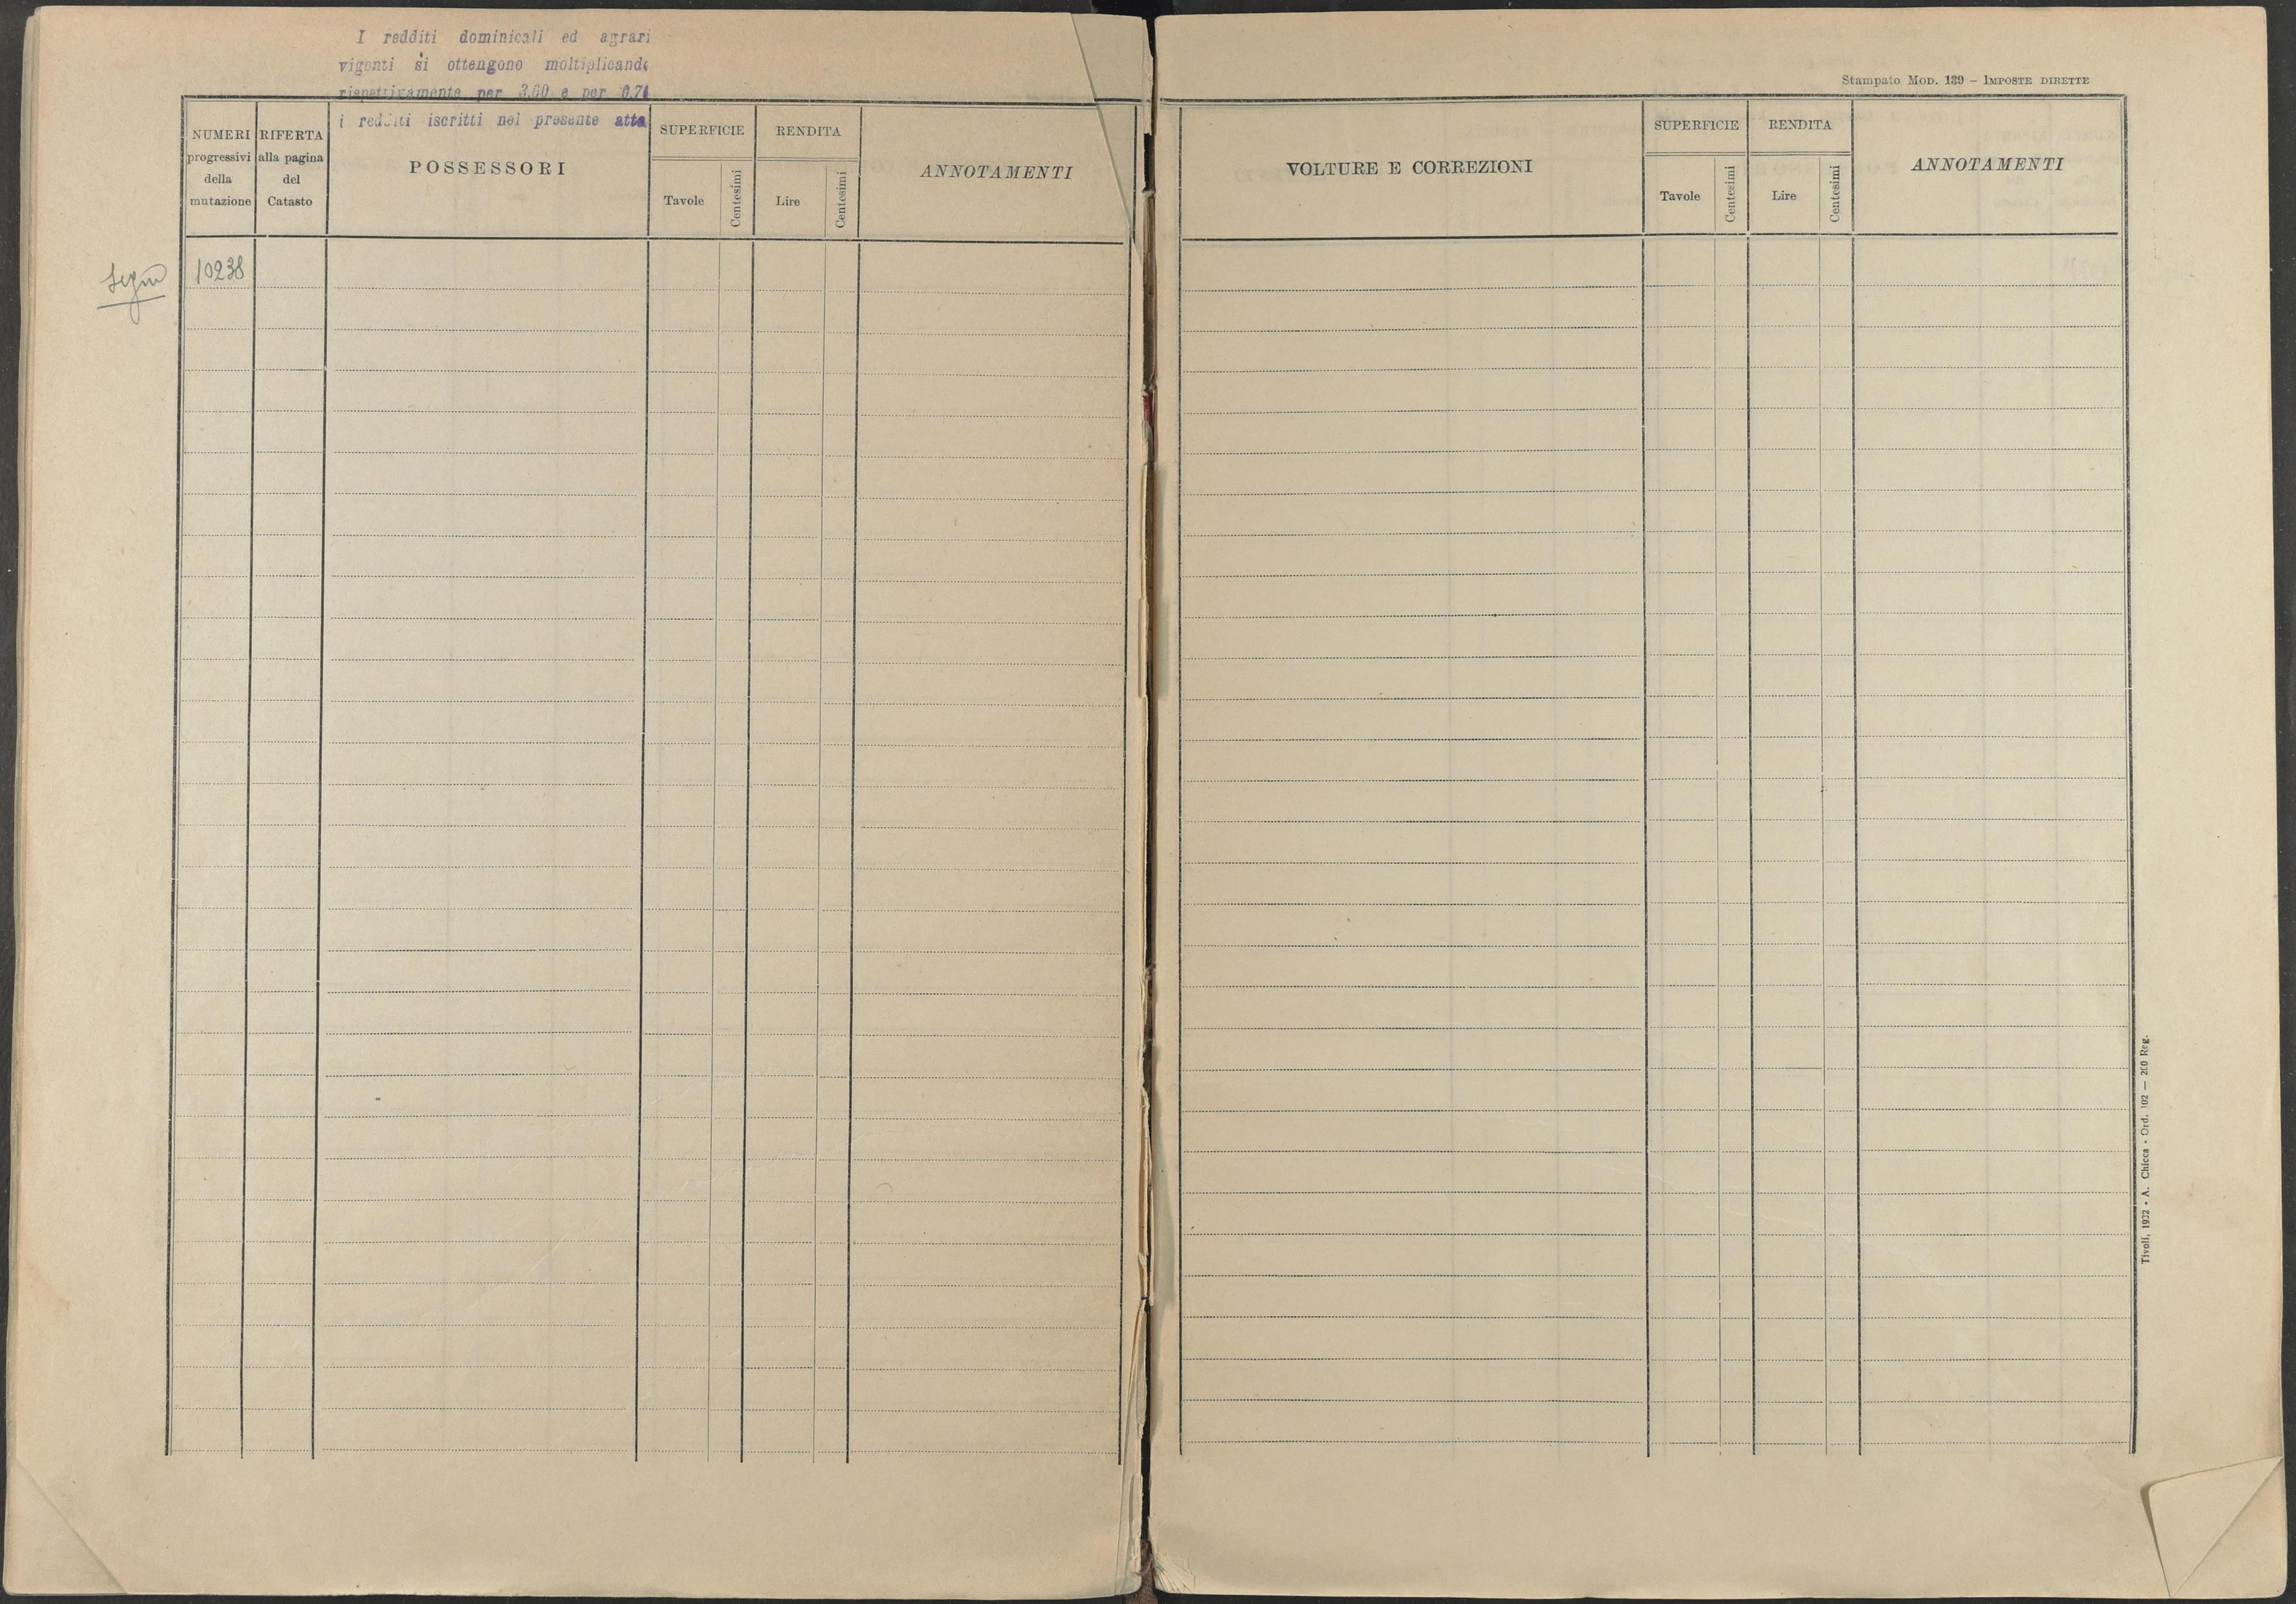 I redditi dominicali ed agrari
vigenti si ottengono moltiplicando
rispettivamente per 3.00 e per
i redditi iscritti nel presente atto
NUMERI
progressivi
della
mutazione
RIFERTA
alla pagina
del
Catasto
POSSESSORI
SUPERFICIE
Tavole
Centesimi
RENDITA
Lire
Centesimi
ANNOTAMENTI
10238
Stampato MOD. 139 – IMPOSTE DIRETTE
VOLTURE E CORREZIONI
SUPERFICIE
Tavole
Centesimi
RENDITA
Lire
Centesimi
ANNOTAMENTI
Tivoli, 1932 - A. Chicca - Ord. 102 — 200 Reg.